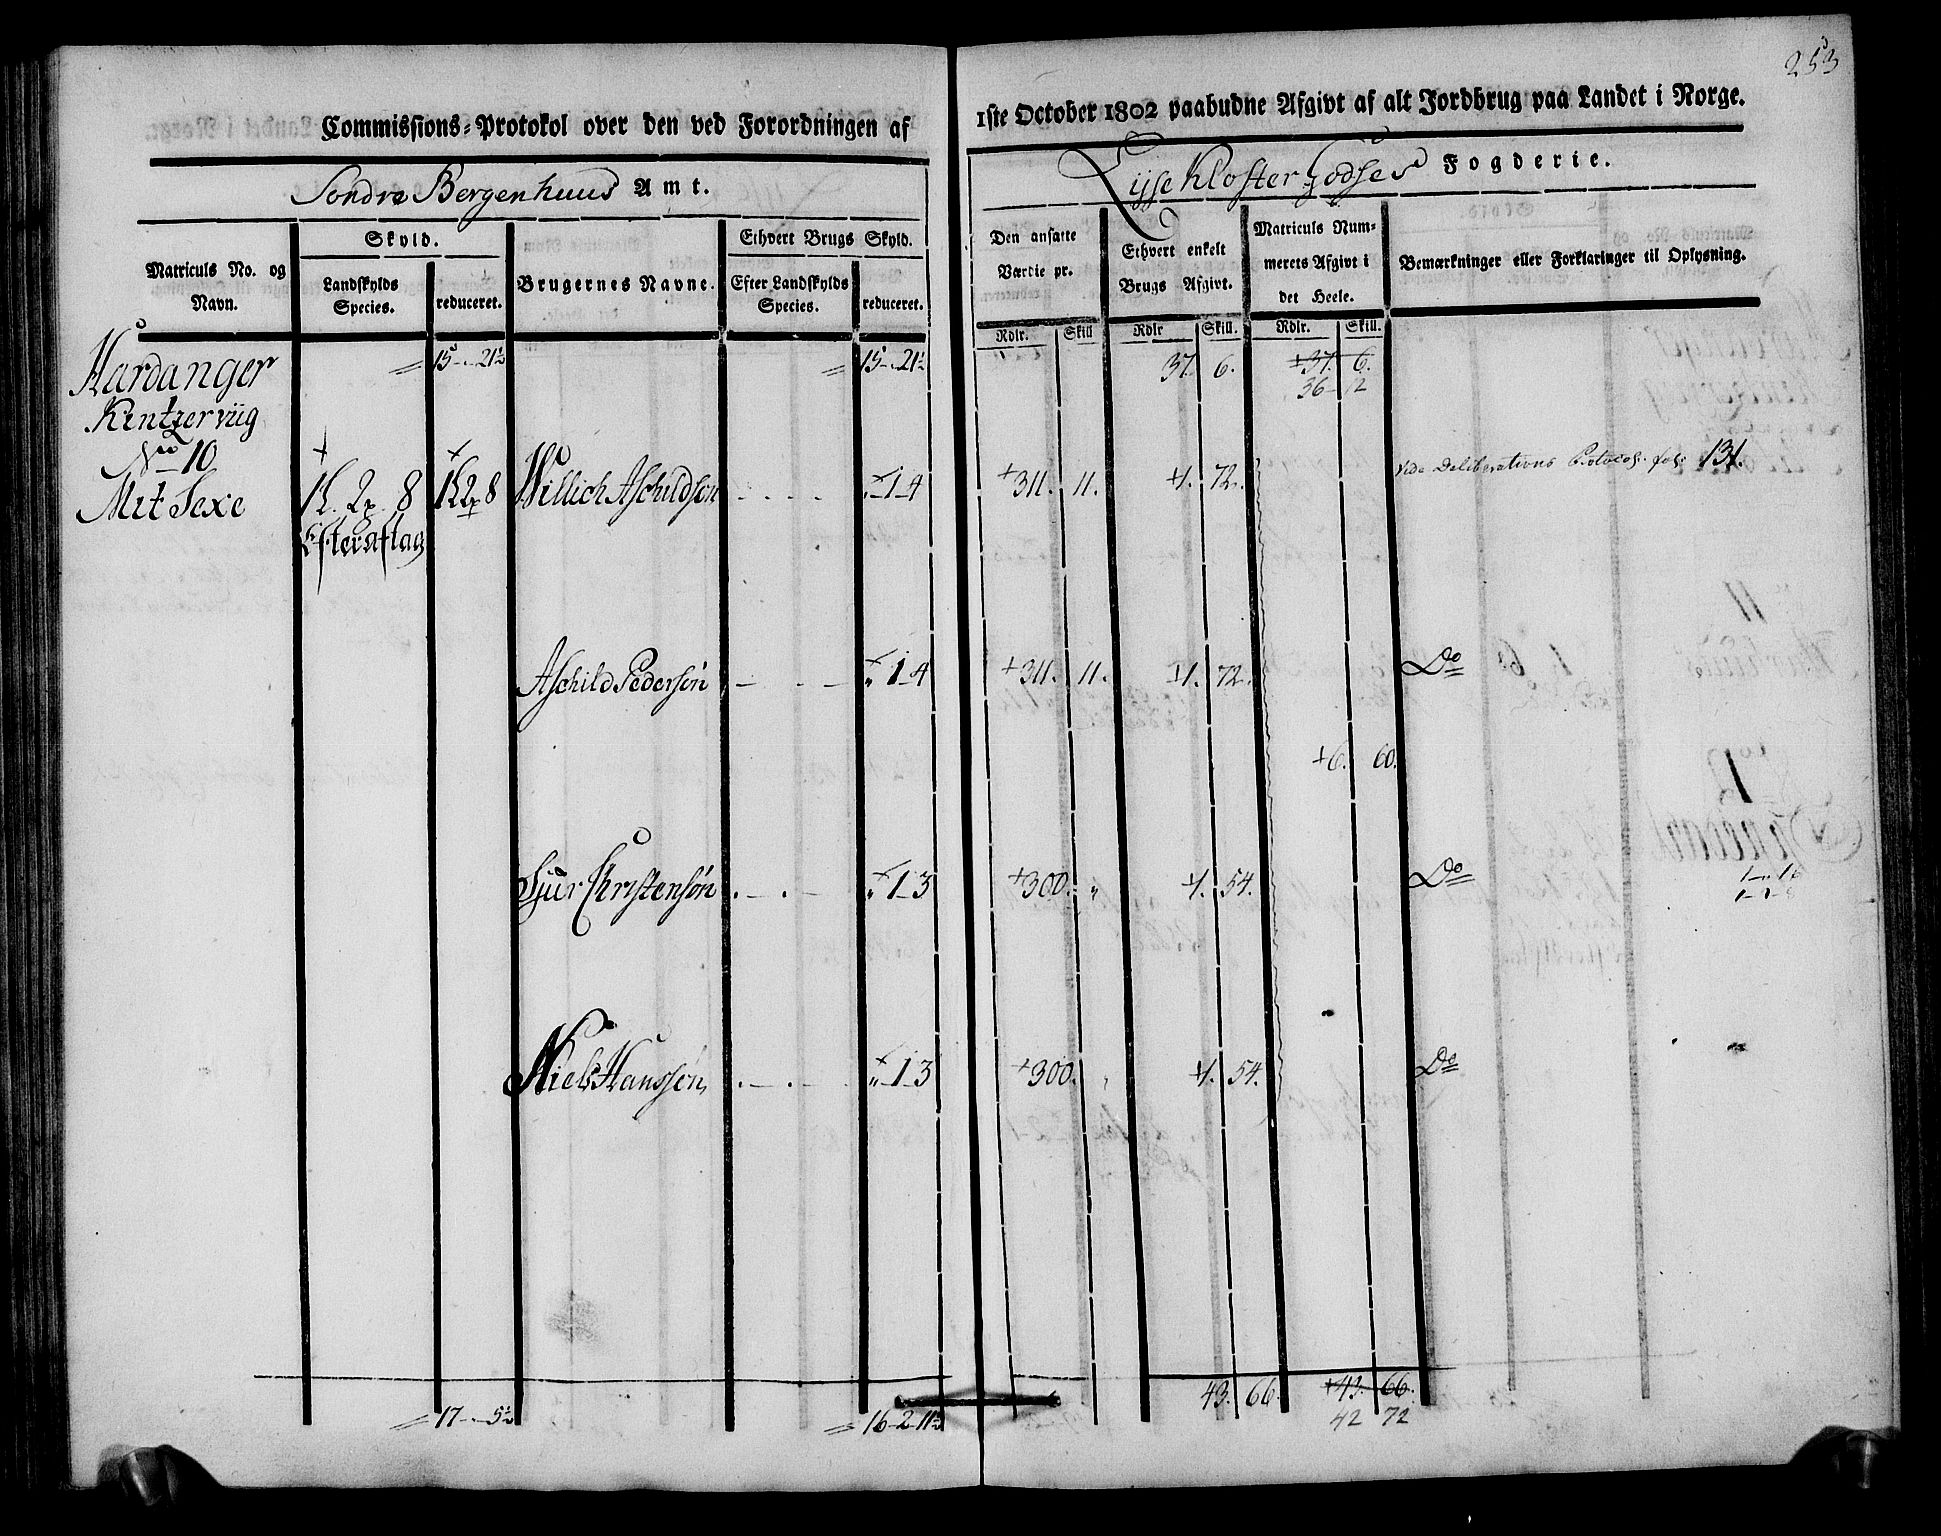 253
Commissions-Protokol over den ved Forordningen af 1ste October 1802 paabudne Afgivt af alt Jordbrug paa Landet i Norge.
Søndre Bergenhuus Amt. Lysse Kloster Godses Fogderie.
Matriculs No. og Navn.
Skyld.
Landskylds Species.
reduceret.
Brugernes Navne.
Ethvert Brugs Skyld.
Efter Landskylds Species.
reduceret.
Den ansatte Værdie pr.
Rdlr. Skill
Ethvert enkelt Brugs Afgivt.
Rdlr Skill.
Matriculs Nummerets Afgivt i det Heele.
Rdlr. Skill.
Bemærkninger eller Forklaringer til Oplysning.
Hardanger 15 - „ - 21½ 15 - „ - 21½ 37. 6. 37. 6.
36 - 12
Kintzerviig
No 10
Mit Sexe 1 2 8 1 2 8 Willich Aschildsøn „ - 1 - 4 311. 11. 1. 72. Vide Deliberations Protocol. fol: 131.
Efter aftag
Aschild Pedersøn „ - 1 - 4 311. 11. 1. 72. Do
6. 60.
Sjur Christensøn „ - 1 - 3 300. „ 1. 54. Do
Niels Hanssøn „ - 1 - 3 300. „ 1. 54. Do
17 - „ - 5½ 16 - 2 - 11½ 43. 66. 43. 66.
42 72